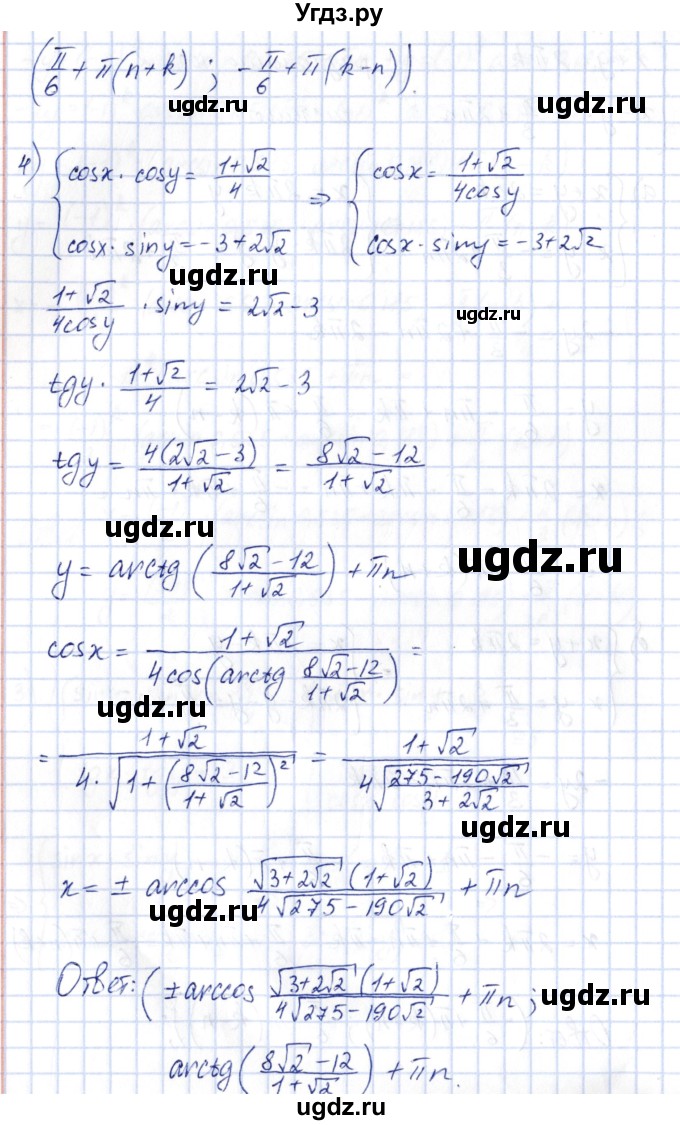 Угдз.ру
(π/6 + π(n+k) ; -π/6 + π(k-n)).
ugdz.ru ugdz.ru
4) { cosx · cosy = (1+√2)/4 ⇒ { cosx = (1+√2)/(4cosy)
cosx · siny = -3+2√2 cosx · siny = -3+2√2
ugdz.ru
(1+√2)/(4cosy) · siny = 2√2-3
ugdz.ru
tgy · (1+√2)/4 = 2√2-3
tgy = 4(2√2-3)/(1+√2) = (8√2-12)/(1+√2)
ugdz.ru
ugdz.ru
y = arctg((8√2-12)/(1+√2)) + πn
cosx = (1+√2)/(4cos(arctg (8√2-12)/(1+√2))) =
ugdz.ru
= (1+√2)/(4·√(1+((8√2-12)/(1+√2))²)) = (1+√2)/(4√((275-190√2)/(3+2√2)))
ugdz.ru
ugdz.ru
x = ± arccos (√(3+2√2)(1+√2))/(4√(275-190√2)) + πn
ugdz.ru
Ответ: (±arccos (√(3+2√2)(1+√2))/(4√(275-190√2)) + πn ;
ugdz.ru
arctg((8√2-12)/(1+√2)) + πn.
ugdz.ru